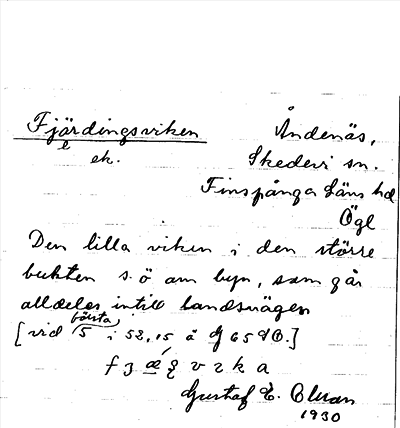 Fjärdingsviken
e
ek.
Åndenäs,
Skedevi sn.
Finspånga Läns hd
Ögl
Den lilla viken i den större
bukten s.ö om byn, som går
alldeles intill landsvägen
[vid första 5 i 52,15 å G 65 dO.]
Gustaf E.
1930